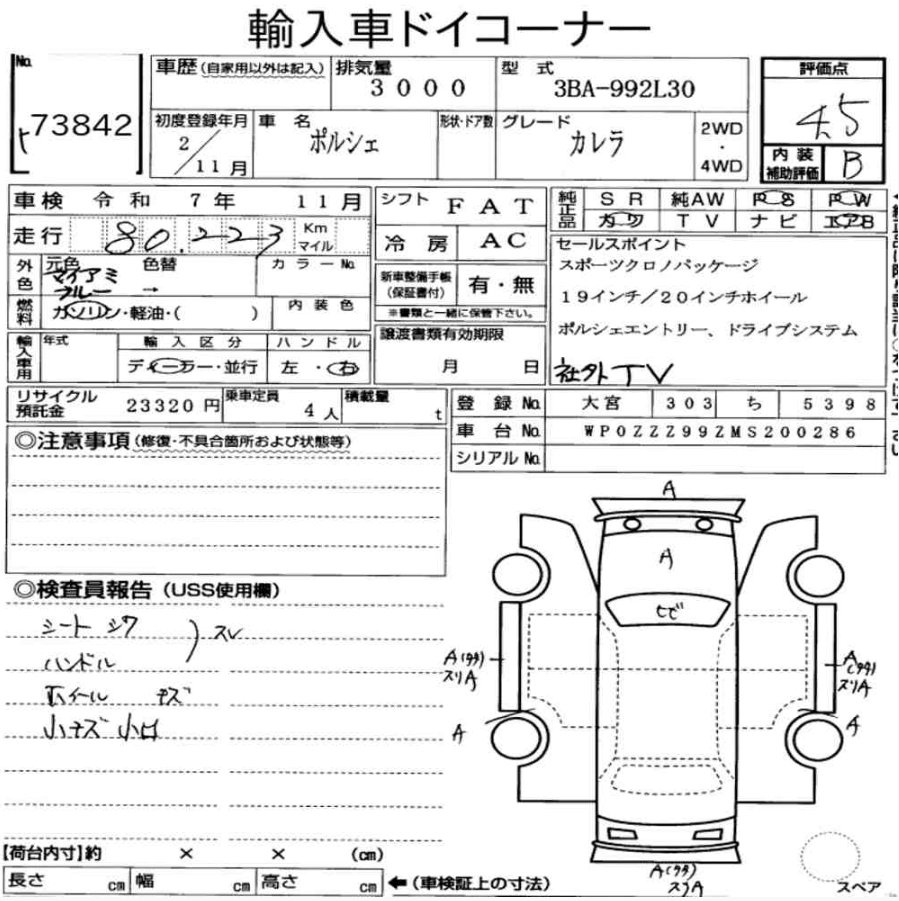 輸入車ドイコーナー
No.
73842
車歴(自家用以外は記入)
排気量
3000
型式
3BA-992L30
評価点
4.5
初度登録年月
2/11月
車名
ポルシェ
形状・ドア数
グレード
カレラ
2WD
・
4WD
内装
補助評価
B
車検 令和 7年 11月
シフト FAT
純正品
SR 純AW PS PW
カワ TV ナビ エアB
走行 80,223 Km マイル
冷房 AC
セールスポイント
スポーツクロノパッケージ
19インチ/20インチホイール
ポルシェエントリー、ドライブシステム
社外TV
外色
元色 色替
マイアミブルー →
カラーNo.
新車整備手帳
(保証書付)
有・無
※書類と一緒に保管下さい。
燃料
ガソリン・軽油・( )
内装色
輸入車用
年式
輸入区分
ディーラー・並行
ハンドル
左・右
譲渡書類有効期限
月 日
リサイクル預託金 23320円
乗車定員 4人
積載量 t
登録No. 大宮 303 ち 5398
車台No. WP0ZZZ99ZMS200286
シリアルNo.
◎注意事項(修復・不具合箇所および状態等)
◎検査員報告(USS使用欄)
シート シワ
ハンドル
スレ
ホイール キズ
小キズ 小凹
A
A
ヒビ
A(タタ)
スリA
A(タタ)
スリA
A
A
A(タタ)
スリA
スペア
【荷台内寸】約 × × (cm)
長さ cm 幅 cm 高さ cm ←(車検証上の寸法)